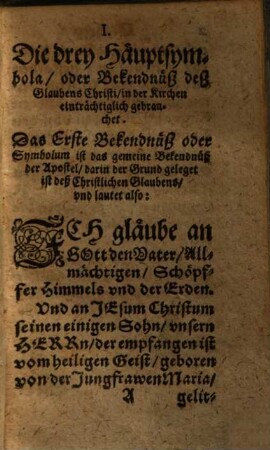 I.
Die drey Häuptsym-
bola/ oder Bekendnüß deß
Glaubens Christi/ in der Kirchen
einträchtiglich gebrau-
chet.
Das Erste Bekendnüß oder
Symbolum ist das gemeine Bekendnüß
der Apostel/ darin der Grund geleget
ist deß Christlichen Glaubens/
vnd lautet also:
ICH gläube an
GOtt den Vater/ All-
mächtigen/ Schöpf-
fer Himmels vnd der Erden.
Vnd an JEsum Christum
seinen einigen Sohn/ vnsern
HERRn/ der empfangen ist
vom heiligen Geist/ geboren
von der Jungfrawen Maria/
A gelit-